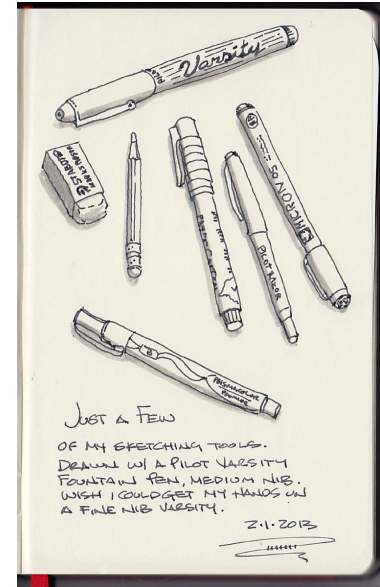 Varsity
PILOT
STAEDTLER
MICRON 05
PILOT RAZOR
PRISMACOLOR
PREMIER
JUST A FEW
OF MY SKETCHING TOOLS.
DRAWN W/ A PILOT VARSITY
FOUNTAIN PEN, MEDIUM NIB.
WISH I COULD GET MY HANDS ON
A FINE NIB VARSITY.
2.1.2013